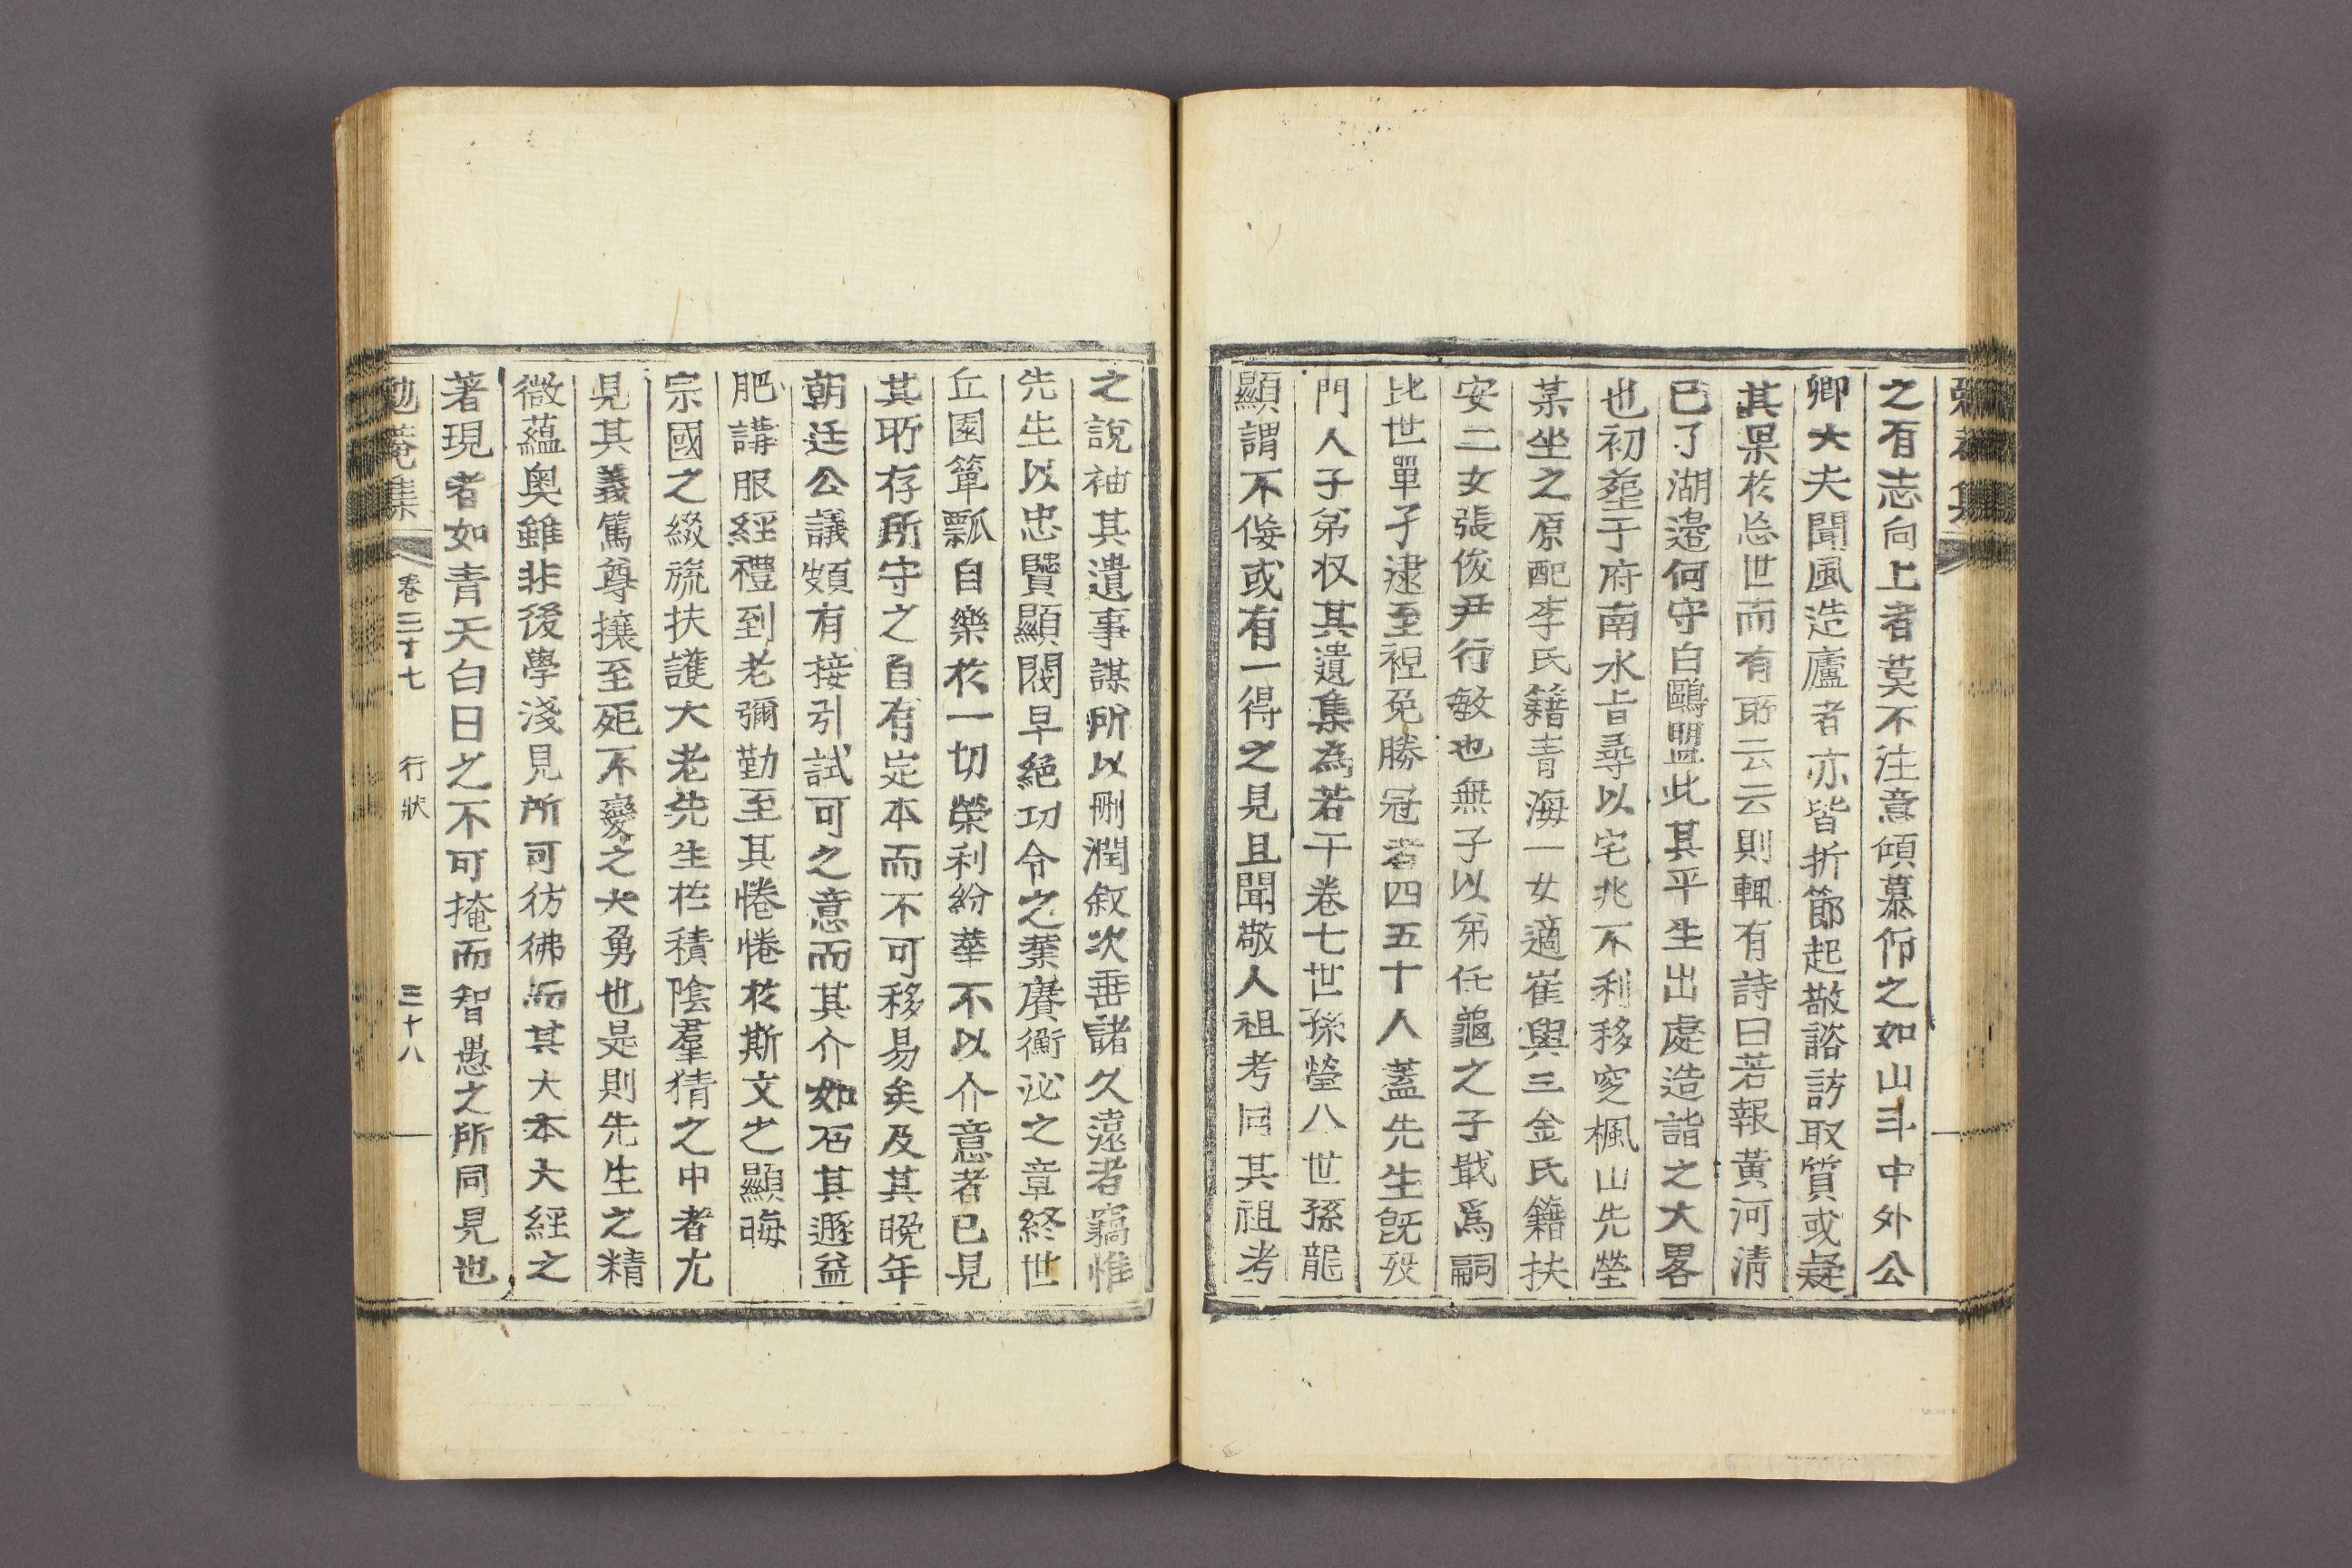 之有志向上者莫不注意傾慕仰之如山斗中外公
卿大夫聞風造廬者亦皆折節起敬諮訪取質或疑
其果於忘世而有所云云則輒有詩曰若報黃河清
已了湖邉何守白鷗盟此其平生出處造詣之大畧
也初塟于府南水旨尋以宅兆不利移窆楓山先塋
某坐之原配李氏籍青海一女適崔與三金氏籍扶
安二女張俊尹行敏也無子以弟任龜之子戢爲嗣
比世單孑逮至裎免勝冠者四五十人蓋先生旣歿
門人子弟収其遺集為若干卷七世孫瑩八世孫龍
顯謂不侫或有一得之見且聞敬人祖考同其祖考
之說袖其遺事謀所以刪潤叙次垂諸久遠者竊惟
先生以忠賢顯閥早絕功令之業賡衡泌之章終世
丘園簞瓢自樂於一切榮利紛華不以介意者已見
其所存所守之自有㝎本而不可移易矣及其晚年
朝廷公議頗有接引試可之意而其介如石其遯益
肥講服經禮到老彌勤至其惓惓於斯文之顯晦
宗國之綴旒扶護大老先生於積陰羣猜之中者尤
見其義篤尊攘至死不變之大勇也是則先生之精
微蘊奥雖非後學淺見所可彷彿而其大本大經之
著現者如青天白日之不可掩而智愚之所同見也
勉菴集 卷三十七 行狀 三十八